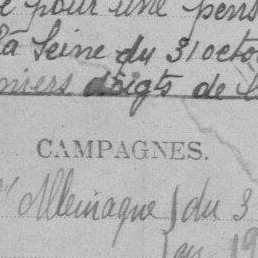 pour une pens
la Seine du 31 octo
niers doigts de l
CAMPAGNES.
Allemagne } du 3
au 19